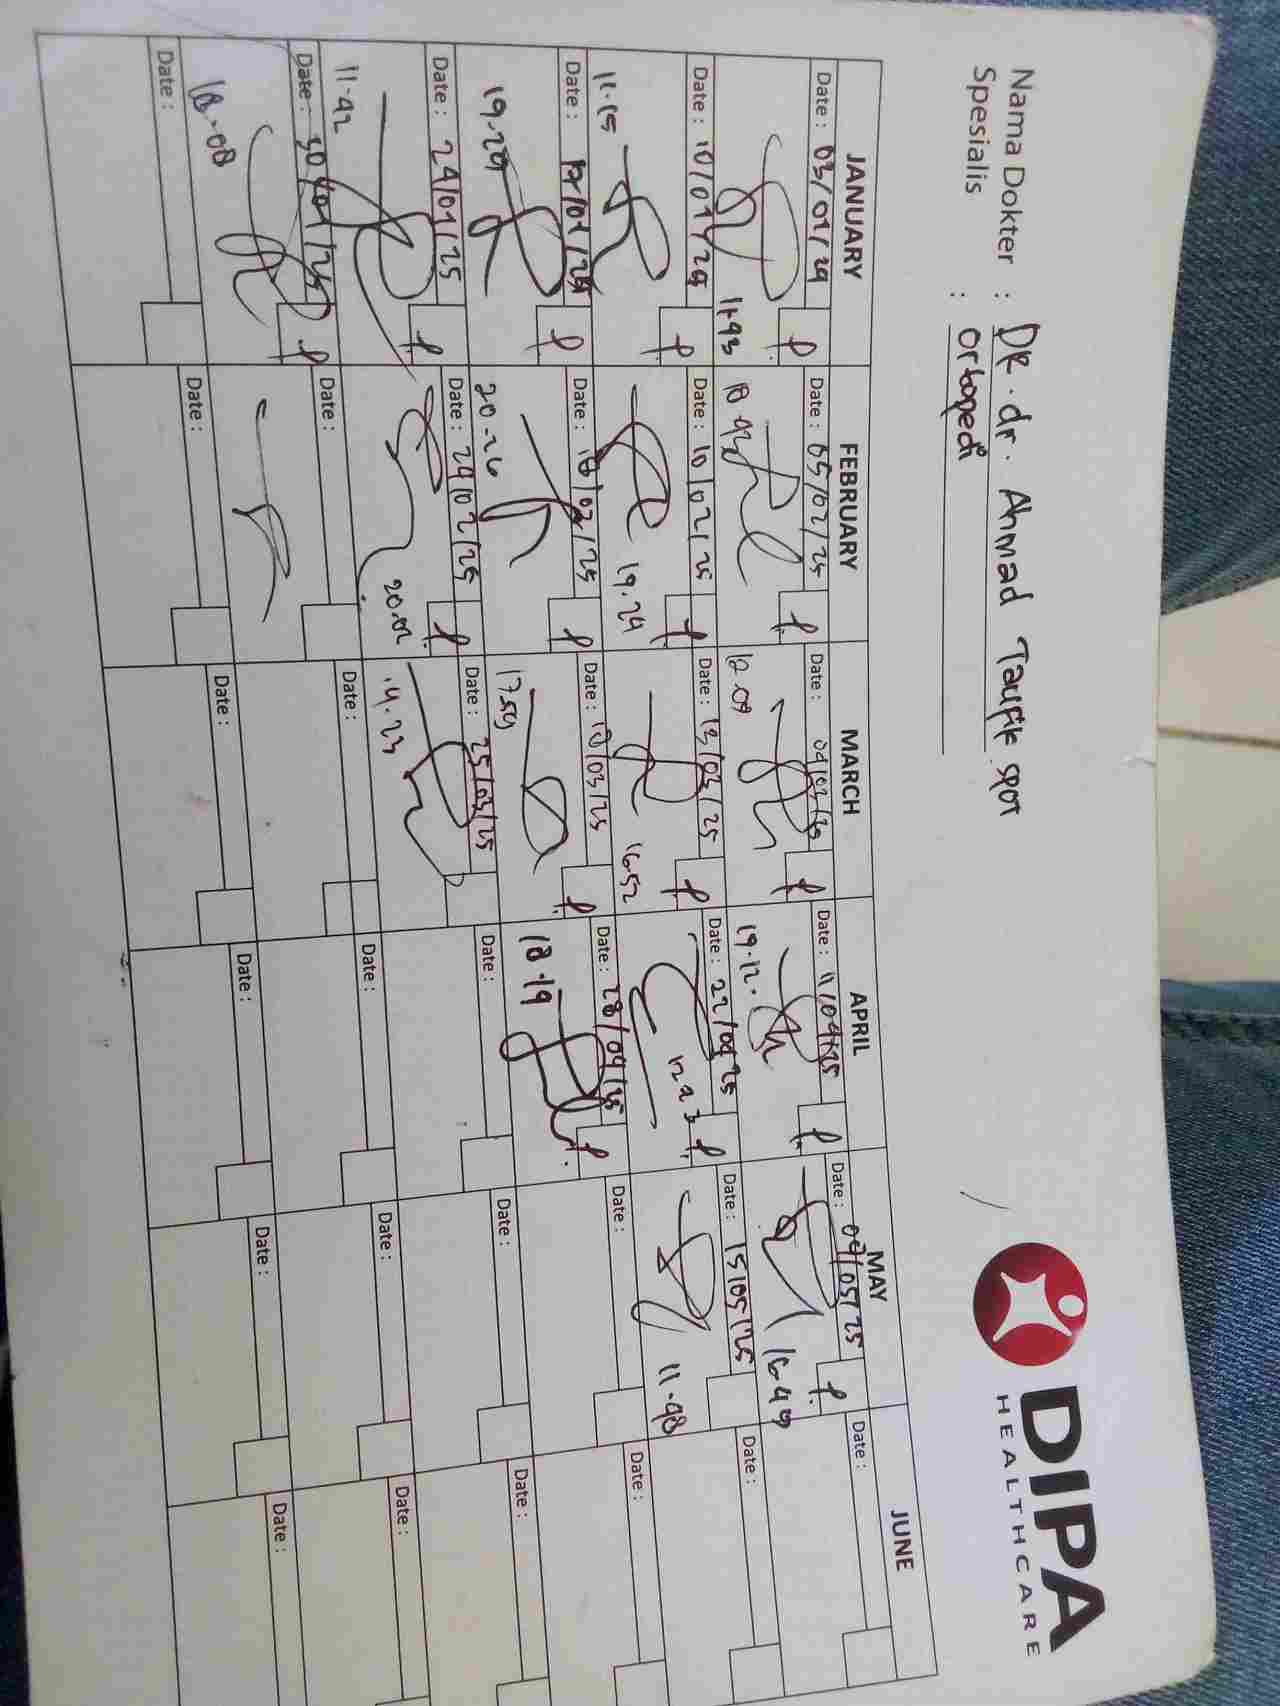 Nama Dokter : DR. dr. Ahmad Taufik SpOT
Spesialis : Ortopedi
DIPA
HEALTHCARE
JANUARY FEBRUARY MARCH APRIL MAY JUNE
Date : 03/01/24 Date : 05/02/25 Date : Date : 11/04/25 Date : 09/05/25 Date :
11.43 18.43 12.09 19.12. 16.49
Date : 10/01/24 Date : 10/02/25 Date : 13/03/25 Date : 22/04/25 Date : 15/05/25 Date :
11.15 19.24 16.52 12.23 11.48
Date : 17/01/24 Date : 18/02/25 Date : 18/03/25 Date : 28/04/25 Date : Date :
19.24 20.26 17.59 18.19
Date : 24/01/25 Date : 24/02/25 Date : 25/03/25 Date : Date : Date :
11.42 20.02 14.23
Date : 30/01/25 Date : Date : Date : Date : Date :
18.08
Date : Date : Date : Date : Date :